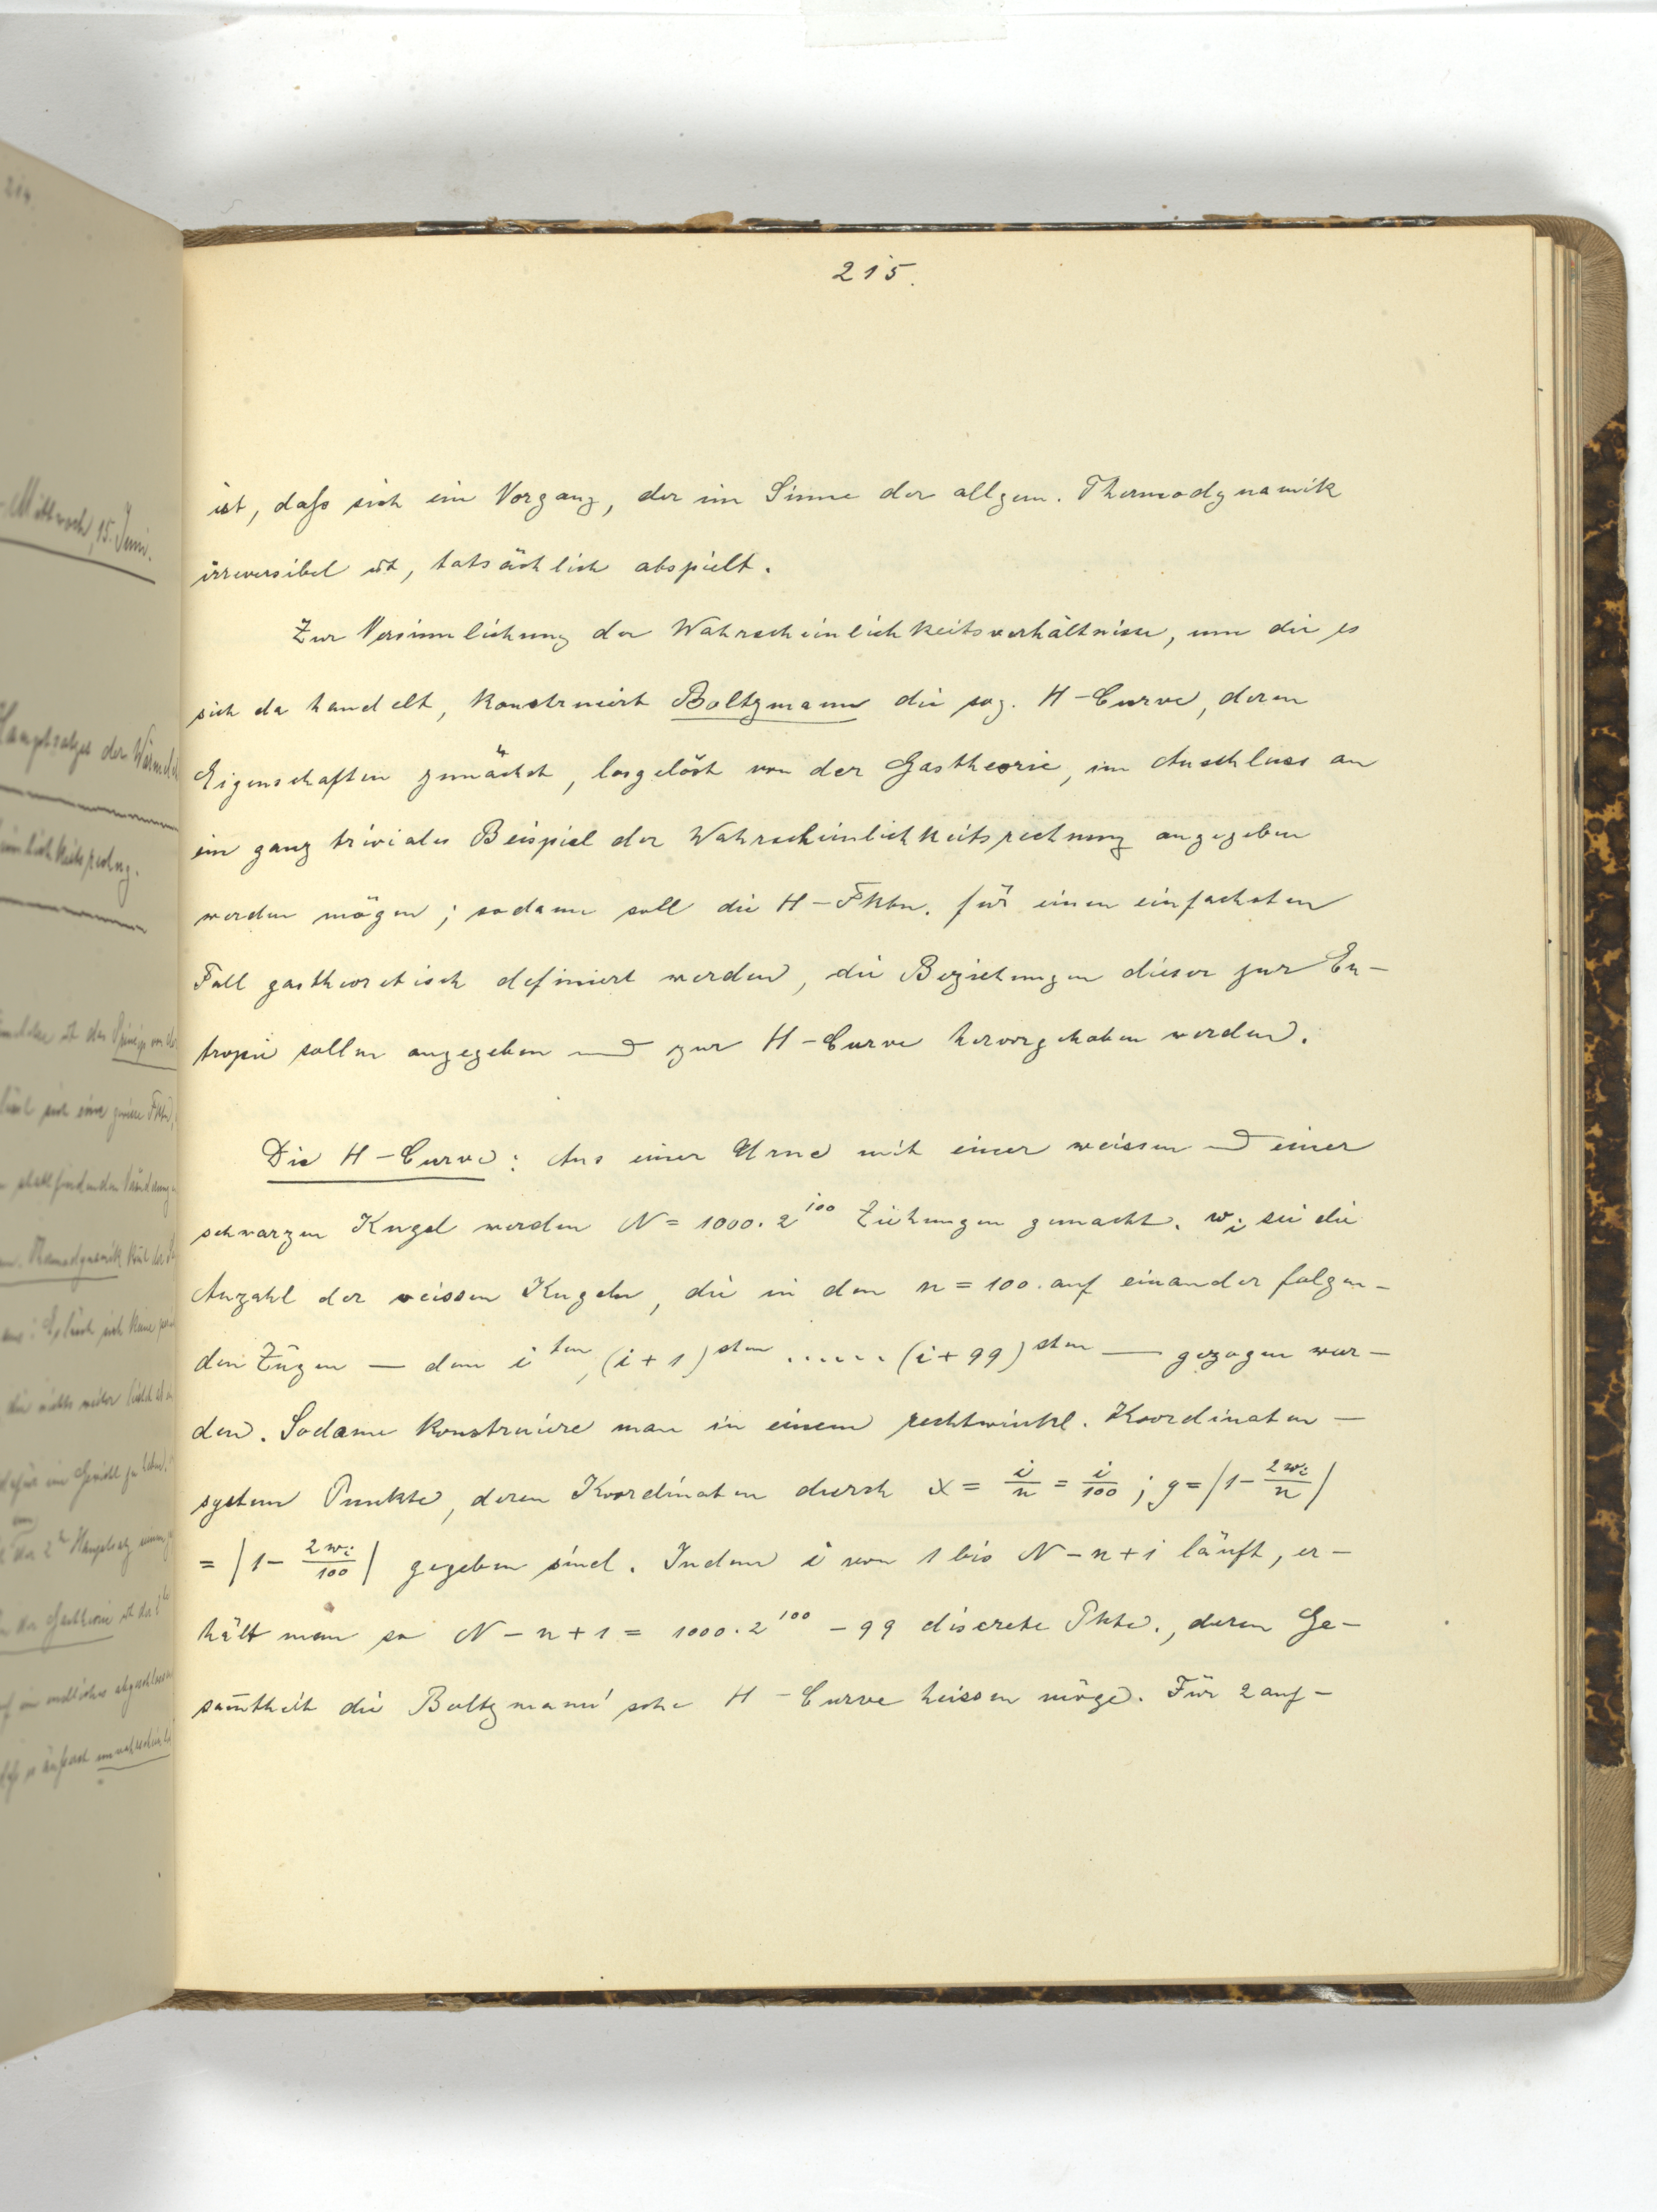 215.
ist, daß sich ein Vorgang, der im Sinne der allgem. Thermodynamik
irreversibel ist, tatsächlich abspielt.
Zur Versinnlichung der Wahrscheinlichkeitsverhältnisse, um die es
sich da handelt, konstruiert Boltzmann die sog. H-Curve, deren
Eigenschaften zunächst, losgelöst von der Gastheorie, im Anschluss an
ein ganz triviales Beispiel der Wahrscheinlichkeitsrechnung angegeben
werden mögen; sodann soll die H-Fktn. für einen einfachsten
Fall gastheoretisch definiert werden, die Beziehungen dieser zur En-
tropie sollen angegeben und zur H-Curve hervorgehoben werden.
Die H-Curve: Aus einer Urne mit einer weissen und einer
schwarzen Kugel werden N = 1000. 2^100 Ziehungen gemacht. w_i sei die
Anzahl der weissen Kugeln, die in den n = 100. auf einander folgen-
den Zügen — dem i^ten, (i+1)^sten ...... (i+99)^sten — gezogen wur-
den. Sodann konstruiere man in einem rechtwinkl. Koordinaten-
system Punkte, deren Koordinaten durch x = i/n = i/100 ; y = |1 - 2w_i/n|
= |1 - 2w_i/100| gegeben sind. Indem i von 1 bis N-n+1 läuft, er-
hält man so N-n+1 = 1000. 2^100 - 99 discrete Pkte., deren Ge-
sam̅theit die Boltzmann'sche H-Curve heissen möge. Für 2 auf-
214.
Mittwoch, 15. Juni.